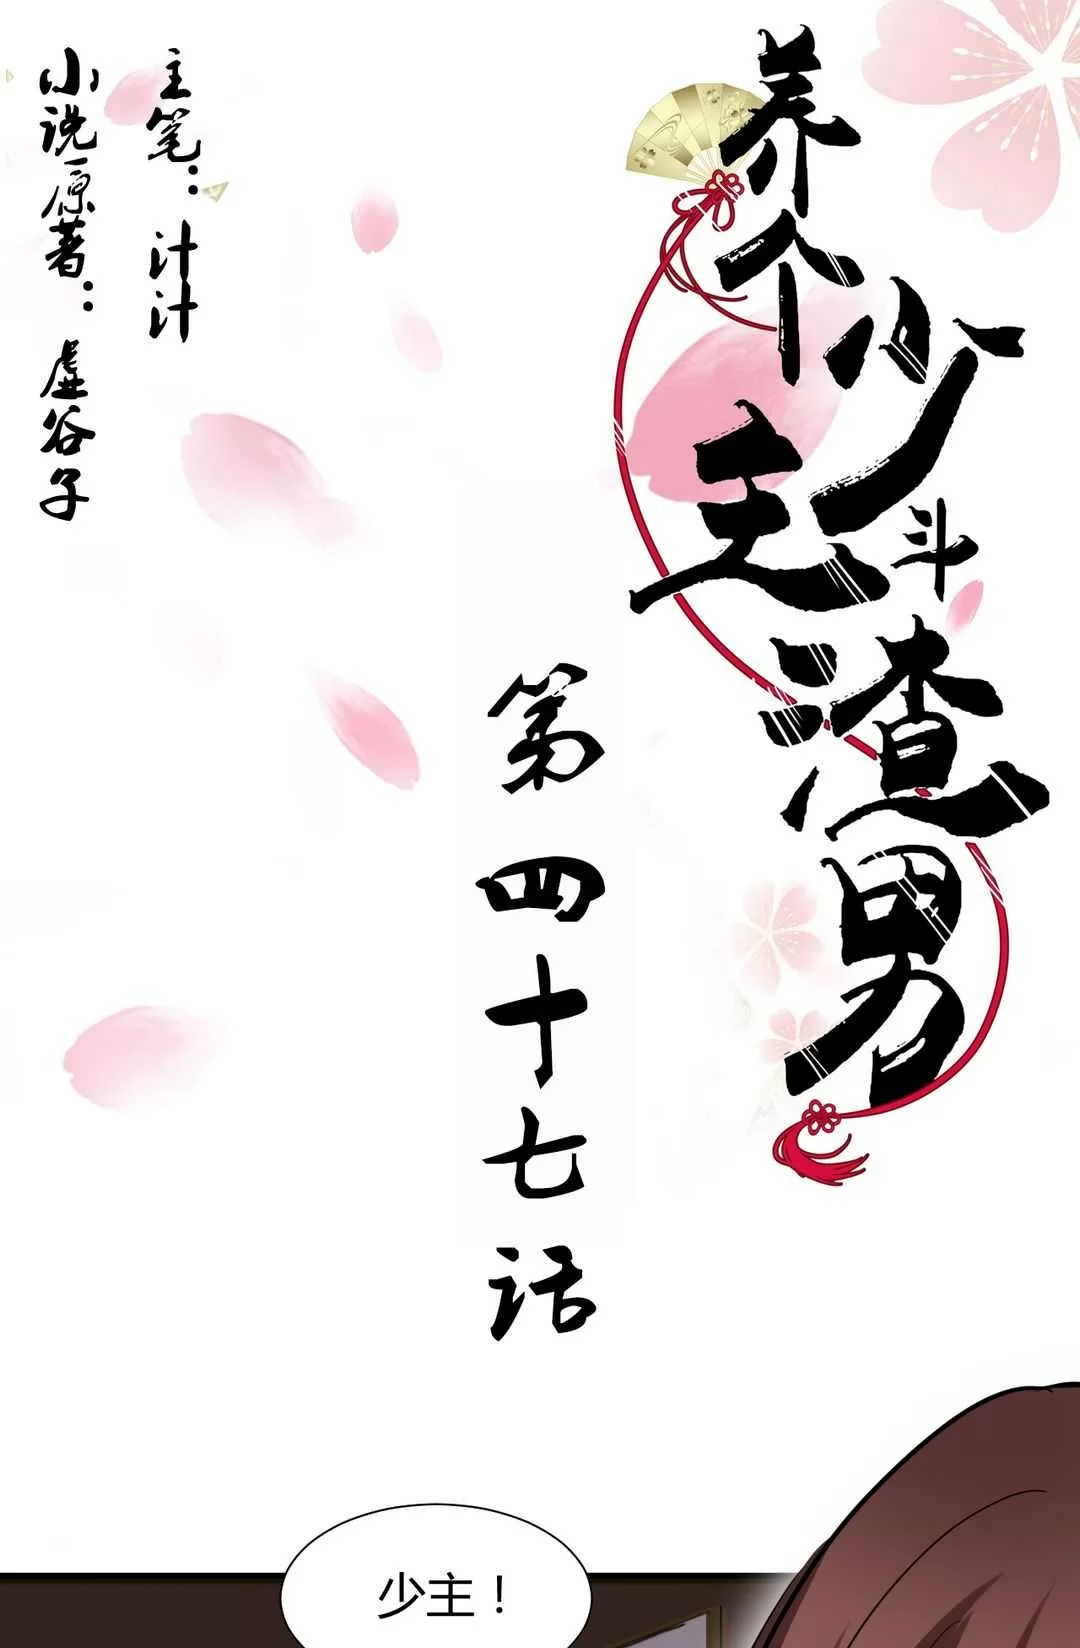 养个少主斗渣男
第四十七话
主笔：计计
小说原著：虚谷子
少主！